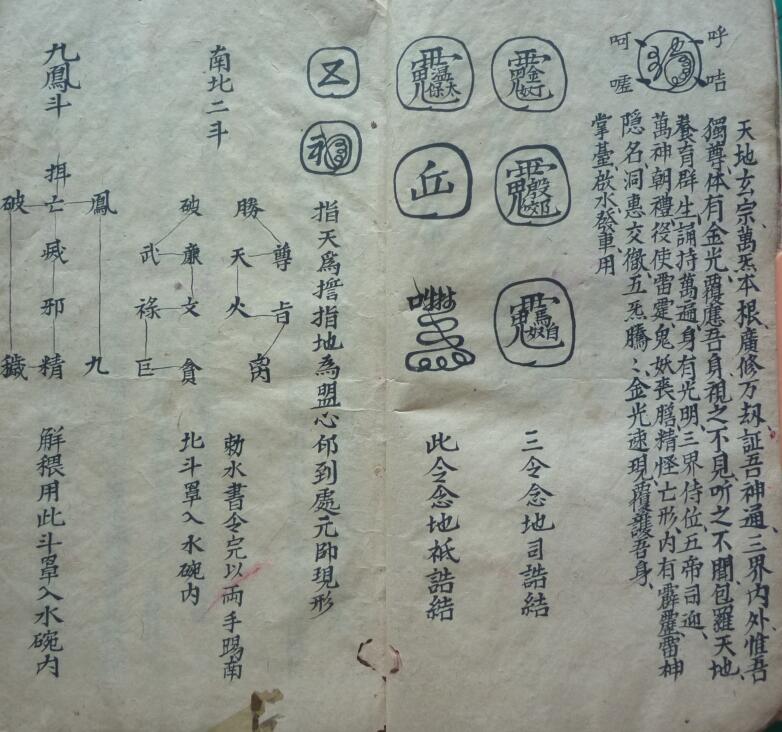 呼
咭
呵
嚧
天地玄宗萬炁本根廣修万刼証吾神通三界内外惟吾
獨尊体有金光覆應吾身視之不見听之不聞包羅天地
養育群生誦持萬遍身有光明三界侍位五帝司迎
萬神朝禮役使雷霆鬼妖喪膽精怪亡形内有霹靂雷神
隐名洞惠交徹五炁騰〻金光速現覆護吾身
掌臺啟水發車用
三令念地司誥結
丘
此令念地祇誥結
指天爲㨪指地為盟心邙到處元帥現形
南北二斗
勝
尊
天
火
旹
离
破
武
廉
祿
文
巨
貪
勅水書令完以両手賜南
北斗罩入水碗内
九鳳斗
鳳
亡
破
威
邪
九
精
解穢用此斗罩入水碗内